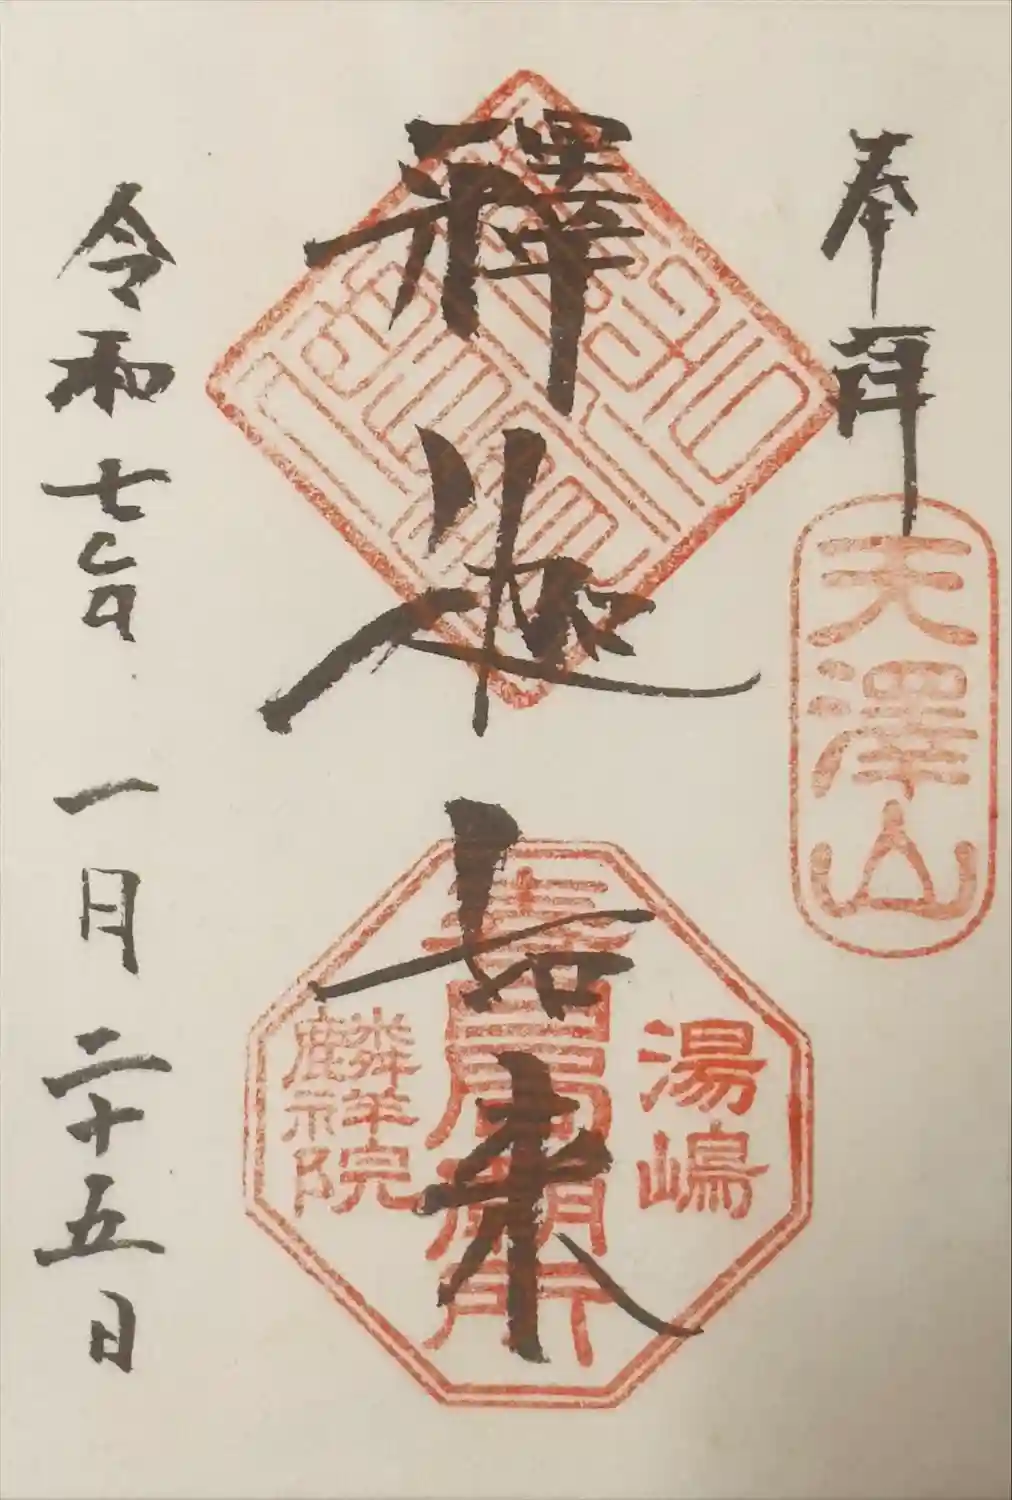 奉拝
天澤山
釋迦如来
湯嶋
春日局廟所
麟祥院
令和七年
一月二十五日